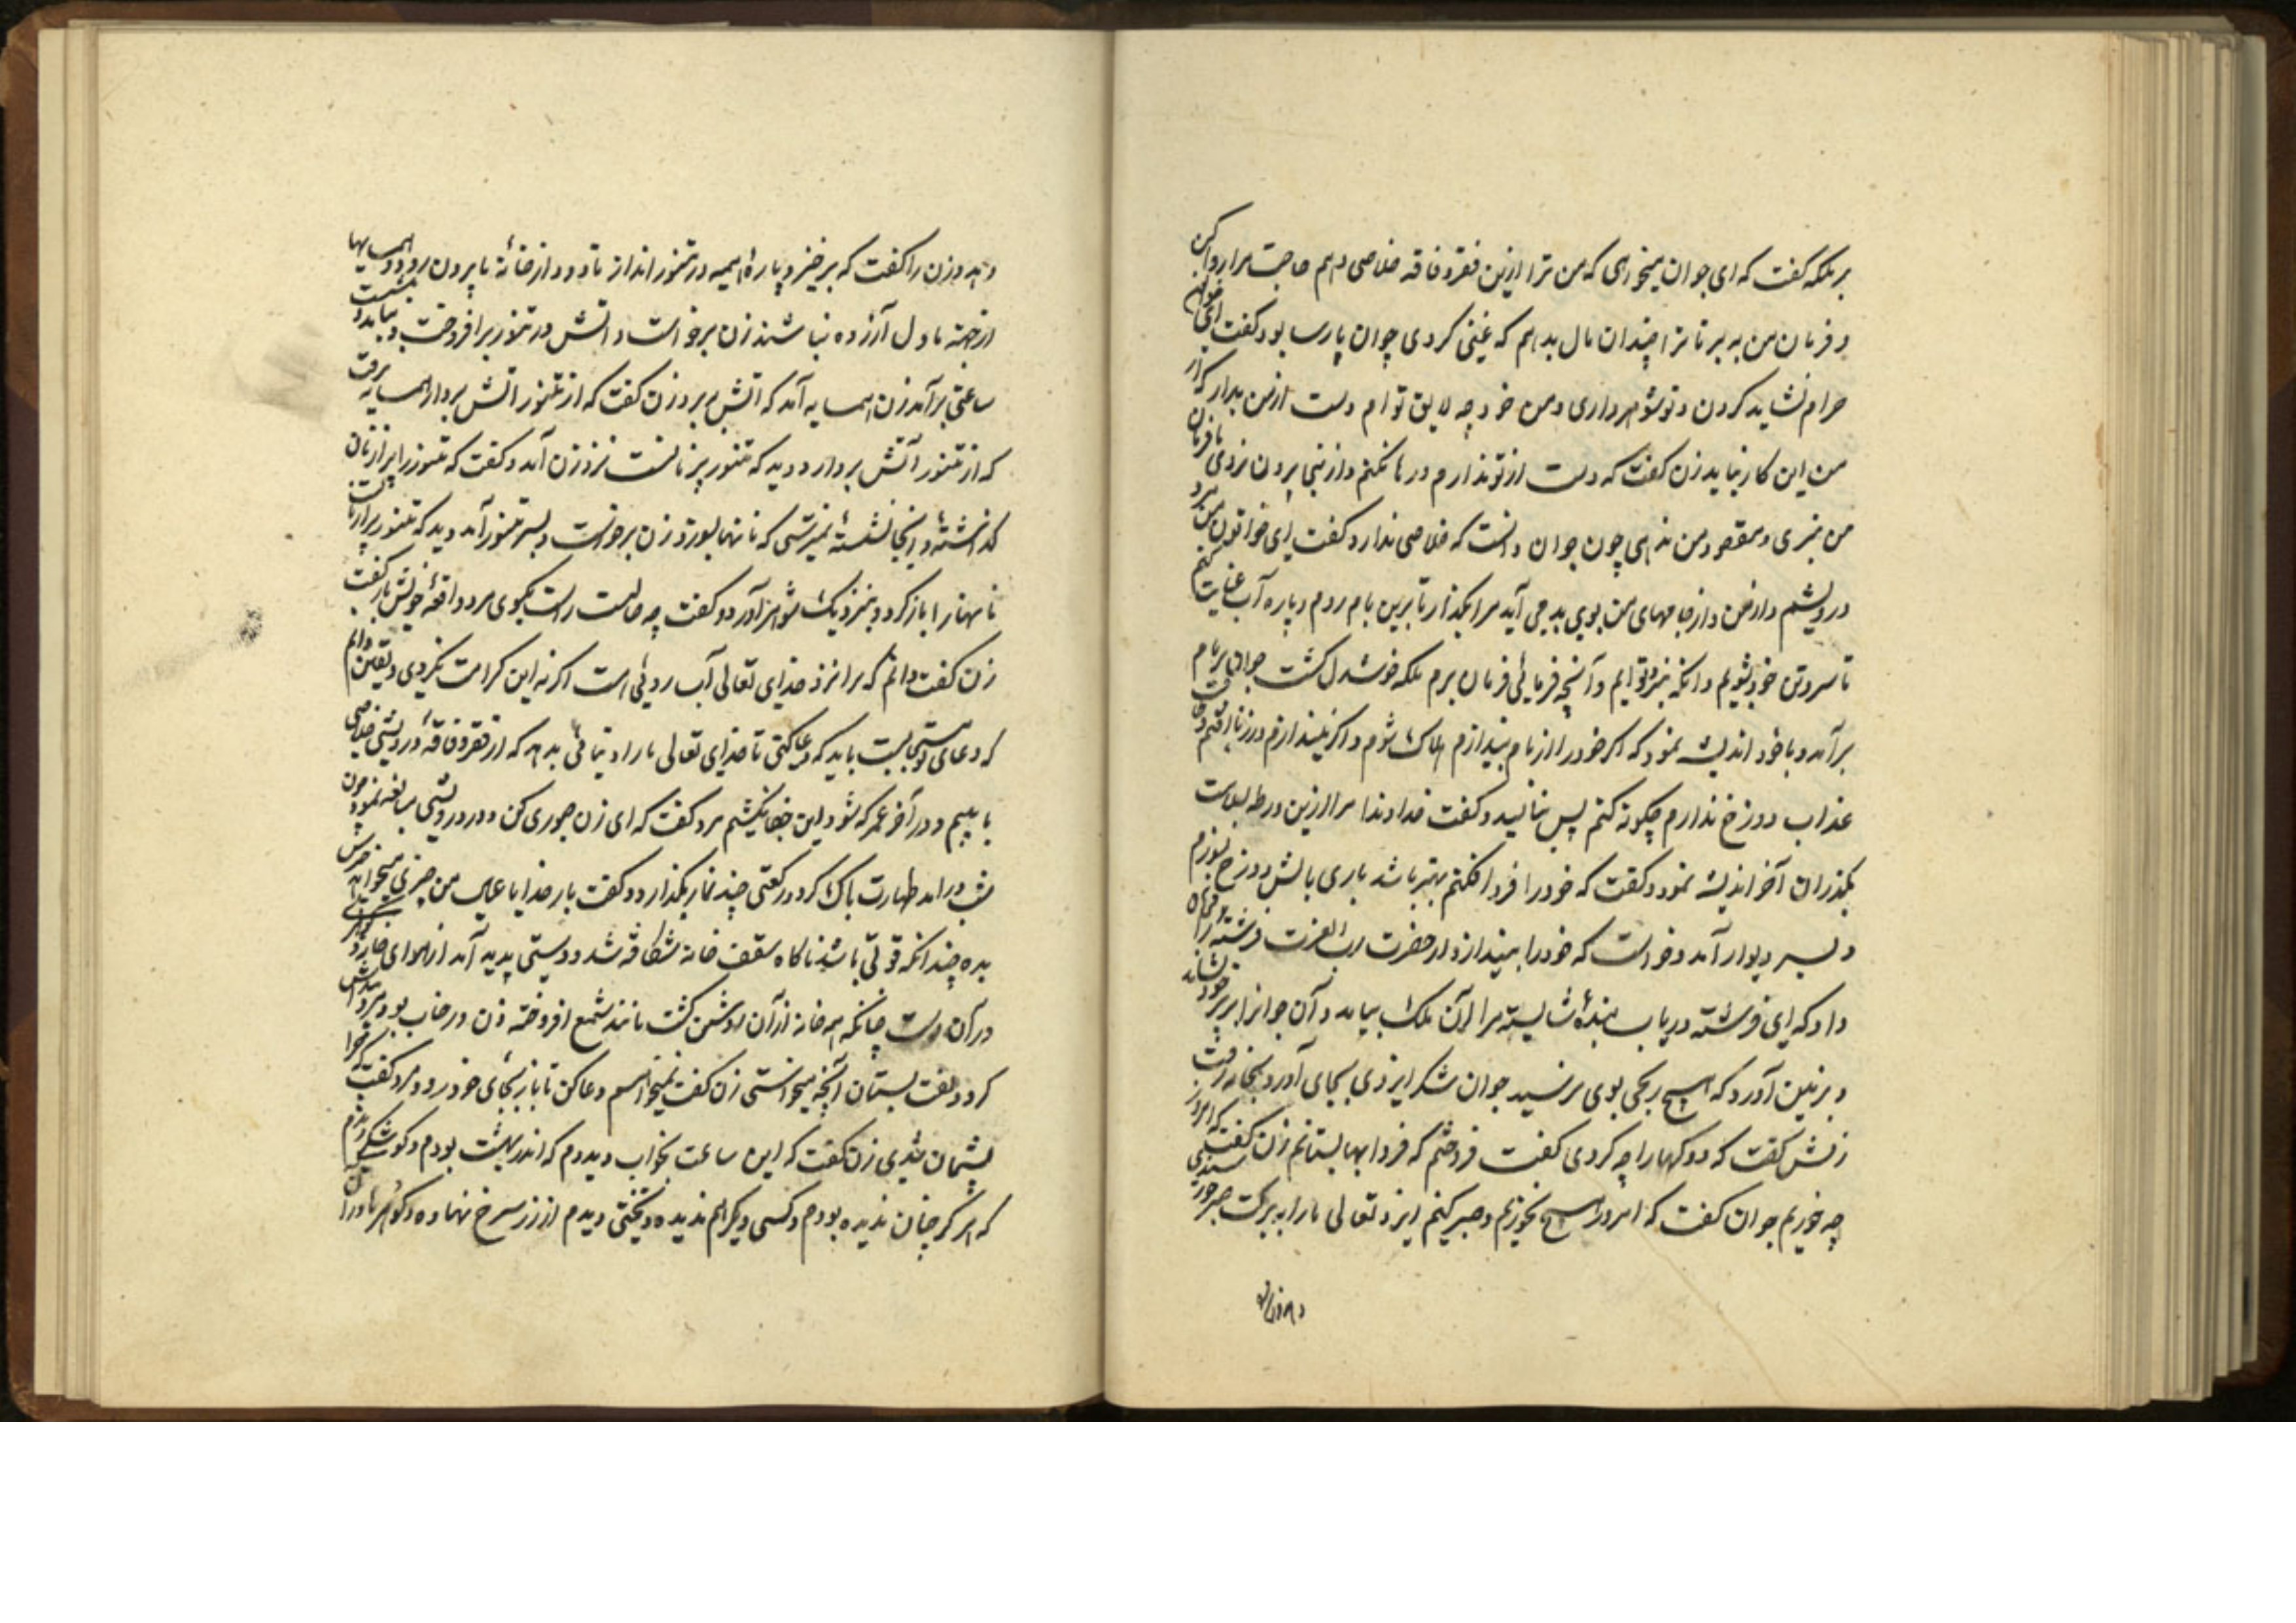 بر ملکه گفت که ای جوان میخواهی که من ترا ازین فقر و فاقه خلاصی دهم حاجت مرا روا کن
و فرمان من به بر تا ترا چندان مال بدهم که غنی کردی جوان پارسا بود گفت ای خواتون
حرام نشاید کردن و تو شوهر داری و من خود چه لایق توام دست از من بدار که از
من این کار نیاید زن گفت که دست از تو ندارم و رها نکنم و ازینجا بیرون نروی تا فرمان
من نبری و مقصود من ندهی چون جوان دانست که خلاصی ندارد گفت ای خواتون من مرد
درویشم و از من و از جامهای من بوی بد می آید مرا بگذار تا برین بام روم و پاره آب عنایت کنم
تا سر و تن خود بشویم و انکه بنزد تو ایم و آنچه فرمائی فرمان برم ملکه خوشدل گشت جوان بر بام
برآمد و با خود اندیشه نمود که اکر خود را از بام بیندازم هلاک شوم و اکر نیندازم در زنا افتم و طاقت
عذاب دوزخ ندارم چکونه کنم پس بنالید و گفت خداوندا مرا ازین ورطه بسلامت
بگذران آخر اندیشه نمود و گفت که خود را فرو افکنم بهتر باشد باری بآتش دوزخ نسوزم
و بسر دیوار آمد و خواست که خود را بیندازد از حضرت رب العزت فرشته را فرمان
داد که ای فرشته دریاب بنده شایسته مرا آن ملک بیامد و آن جوانرا بر پر خود نشاند
و بزمین آورد که هیچ رنجی بوی نرسید جوان شکر ایزدی بجای آورد و بخانه رفت
زنش گفت که دوکها را چه کردی گفت فروختم که فردا بها بستانم زن گفت که امروز
چه خوریم جوان گفت که امروز هیچ نخوریم و صبر کنیم ایزد تعالی ما را به برکت صبر خورسندی
دهد و زن را
دهد و زن را گفت که برخیز و پاره هیمه در تنور انداز تا دود از خانه ما بیرون رود و همسایها
از جهة ما دل آزرده نباشند زن برخواست و اتش در تنور برافروخت و بیامد و بنشست
ساعتی برآمد زن همسایه آمد که اتش برد زن گفت که از تنور اتش بردار همسایه برفت
که از تنور آتش بردارد دید که تنور پر نانست نزد زن آمد و گفت که تنور را پر از نان
گذاشته و اینجا نشسته نمیترسی که نانها بسوزد زن برخواست و بسر تنور آمد دید که تنور پر از نانست
نانها را باز کرد و بنزدیک شوهر آورد و گفت چه حالست راست بگوی مرد واقعه خویش باز گفت
زن گفت دانم که ترا نزد خدای تعالی آب روئی است اکر نه این کرامت نکردی و یقین دانم
که دعای تو مستجابست باید که دعا کنی تا خدای تعالی ما را دنیائی بدهد که از فقر و فاقه و درویشی خلاصی
یابیم و در آخر عمر که شود این جفا نکشیم مرد گفت که ای زن صبوری کن و در درویشی مبالغه نمود چون
شب درآمد طهارت پاک کرد و رکعتی چند نماز بگذارد و گفت بار خدایا عیال من چیزی میخواهد
بده چندانکه قوتی باشد ناکاه سقف خانه شکافته شد و دستی پدید آمد از هوای خانه و گوهری
در آن دست چنانکه همه خانه از آن روشن گشت مانند شمع افروخته زن در خواب بود مرد بیدارش
کرد و گفت بستان آنچه میخواستی زن گفت نمیخواهم دعا کن تا باز بجای خود رود مرد گفت که چرا
پشیمان شدی زن گفت که این ساعت بخواب دیدم که اندر بهشت بودم و کوشکی دیدم
که هرگز چنان ندیده بودم و کسی دیگر هم ندیده و تختی دیدم از زر سرخ نهاده و گوهرها در آن